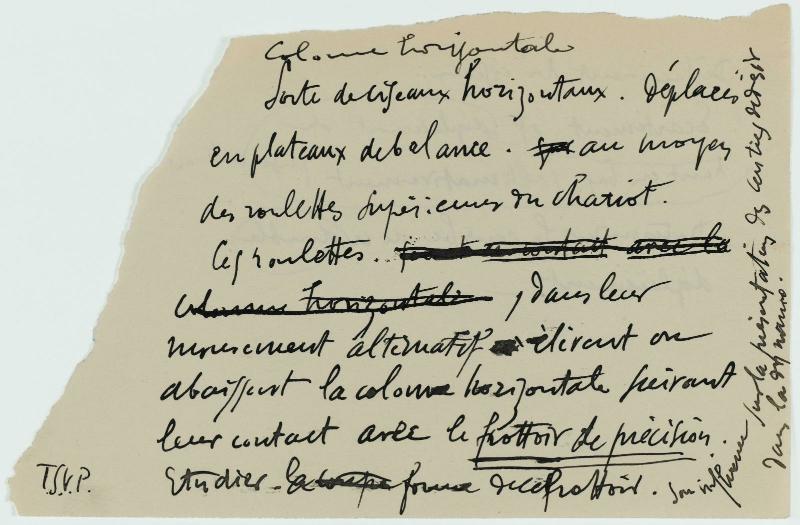 Colonne horizontale
Sorte de ciseaux horizontaux. Déplacés
en plateaux de balance. au moyen
des roulettes supérieures du chariot.
Ces roulettes. sont en contact avec la
colonne horizontale, dans leur
mouvement alternatif élèvent ou
abaissent la colonne horizontale suivant
leur contact avec le frottoir de précision.
Etudier la coupe forme de ce frottoir.
T.S.V.P.
Son influence sur la présentation des
dans la dynamo.